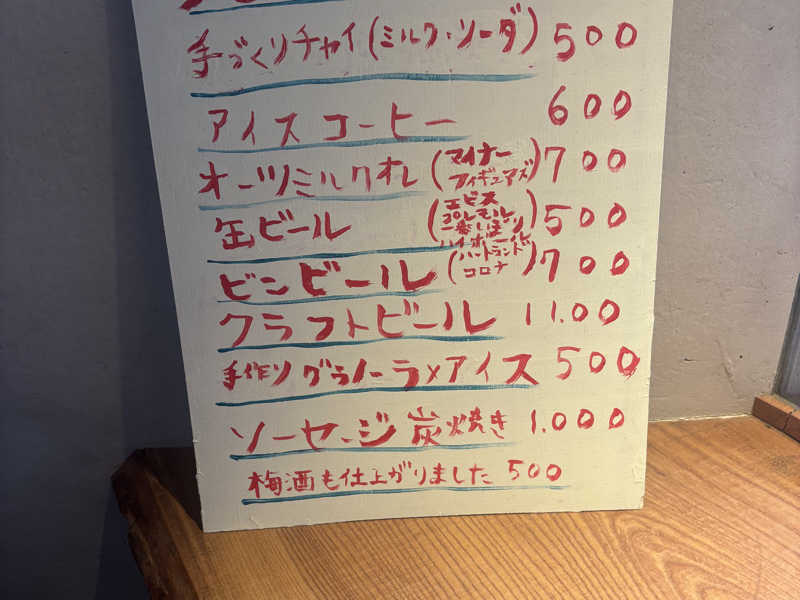 手づくりチャイ(ミルク・ソーダ) 500
アイスコーヒー 600
オーツミルクオレ (マイナー フィギュアズ) 700
缶ビール (エビス プレモル 一番しぼり ハイボール) 500
ビンビール (ハートランド コロナ) 700
クラフトビール 11.00
手作りグラノーラ×アイス 500
ソーセージ炭焼き 1.000
梅酒も仕上がりました 500